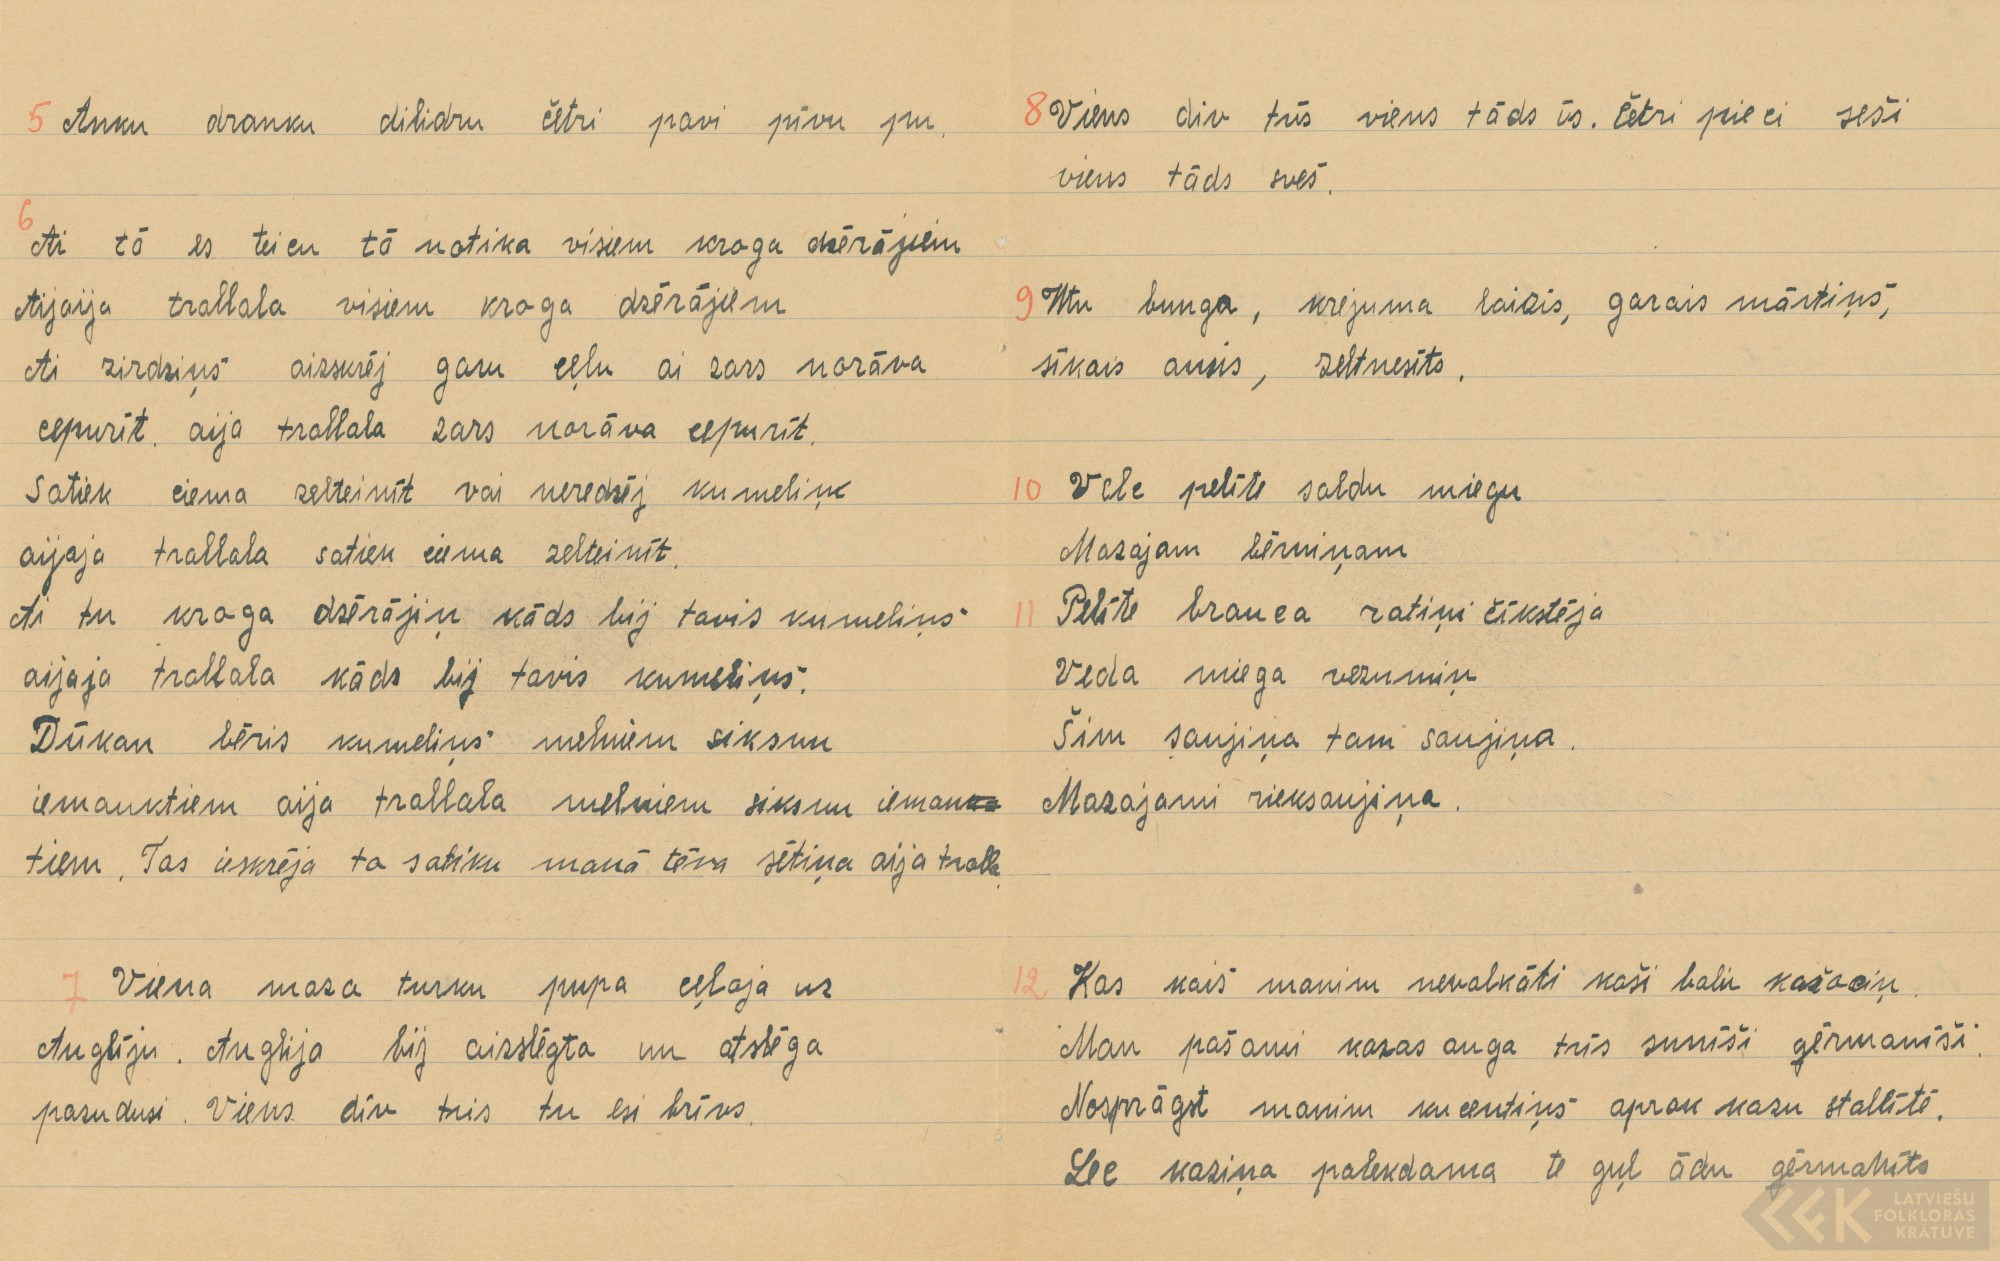 5 Anku dranku dilidru četri pavi pīvu pu.
6
Ai tā es teicu tā notika visiem kroga dzērājiem
Aijaija trallala visiem kroga dzērājiem
Ai zirdziņš aizskrēj garu ceļu ai zars norāva
cepurīt. aija trallala zars norāva cepurīt.
Satiek ciema zelteinīt vai neredzēj kumeliņ
aijaja trallala satiek ciema zelteinīt.
Ai tu kroga dzērājiņ kāds bij tavis kumeliņš
aijaja trallala kāds bij tavis kumeliņš.
Dūkan bēris kumeliņš melniem siksnu
iemauktiem aija trallala melniem siksnu iemau
tiem. Tas ieskrēja ta satiku manā tēva sētiņa aija tralla.
7 Viena maza turku pupa ceļoja uz
Angliju. Anglija bij aizslēgta un atslēga
pazudusi. Viens div trīs tu esi brīvs.
8 Viens div tūs viens tāds ūs. četri pieci seši
viens tāds sveš.
9 Mu bunga, krējuma laizis, garais mārtiņš,
sīkais ansis, zeltnesīts.
10 Velc pelīte saldu miegu
Mazajam bērniņam
11 Pelīte brauca ratiņi čīkstēja
Veda miega vezumiņ
Šim saujiņa tam saujiņa.
Mazajami rieksaujiņa.
12 Kas kaiš manim nevalkāti kaši balu kažociņ.
Man pašami kazas auga trīs sunīši ģērmanīši.
Nosprāgst manim kucentiņš aprok kazu stallītē.
Lec kaziņa palekdama te guļ ādu ģērmanīts
LATVIEŠU
FOLKLORAS
KRĀTUVE